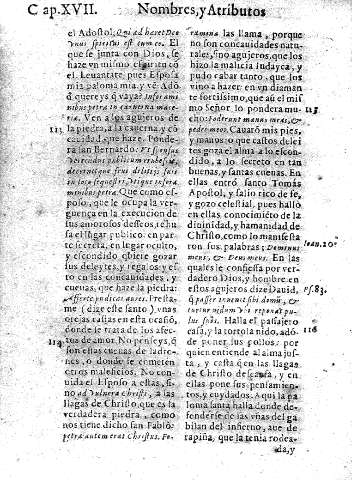 Cap.XVII. Nombres, y Atributos
el Adostol: Qui ad hæret Deo
vnus spiritus est cum eo. El
que se junta con Dios, se
haze vn mismo espiritu cõ
el. Leuantate pues Esposa
mia paloma mia, y vẽ. Adõ
q̃ quereys q̃ vaya? In forami
nibus petra in cauerna mace-
ria. Ven a los agujeros de
113
la piedra, a la cauerna, y cõ
cauidad que haze. Ponde-
ra san Bernardo.
minibus petra. Que como el
esposo, que le ocupa la ver-
guença en la execucion de
sus amorosos desseos, rehu
sa el lugar publico: en par
te secreta, en lugar oculto,
y escondido quiere gozar
sus deleytes, y regalos, y es
to en las concauidades, y
cueuas, que haze la piedra.
Afferte judices aures. Presta-
me (dize este santo) vnas
orejas castas en esta ocasiõ,
donde se trata de los afec-
tos de amor. No penseys, q̃
114
son estas cueuas de ladro-
nes, o donde se cometen
otros maleficios. No con-
uida el Esposo a estas, si-
no ad vulnera Christi, a las
llagas de Christo, que es la
verdadera piedra, como
nos tiene dicho san Pablo:
petra autem erat Christus. Fo-
ramina las llama, porque
no son concauidades natu-
rales, sino agujeros, que los
hizo la malicia Iudayca, y
pudo cabar tanto, que los
vino a hazer en vn diaman
te fortissimo, que aũ el mis
mo Señor lo pondera mu-
115
cho: Foderunt manus meas, &
pedes meos. Cauarõ mis pies,
y manos: o que castos deley
tes goza el alma a lo escon-
dido, a lo secreto en tan
buenas, y santas cueuas. En
ellas entró santo Tomás
Apostol, y salio rico de fe,
y gozo celestial, pues halló
en ellas conocimiẽto de la
diuinidad, y humanidad de
Christo, como lo manifesta
ron sus palabras; Dominus
Ioan.20.
meus, & Deus meus. En las
quales le confiessa por ver-
dadero Dios, y hombre en
estos agujeros dize Dauid,
Ps.83.
q̃ passer inuenit sibi domũ, &
turtur nidum vbi reponat pu-
llos suos. Halla el pasajero
casa, y la tortola nido, adõ-
116
de poner sus pollos: por
quien entiende al alma jus-
ta, y casta q̃ en las llagas
de Christo descansa, y en
ellas pone sus pensamien-
tos, y cuydados. Aqui la pa
loma santa halla donde de-
fenderse de las vñas del ga
bilan del infierno, aue de
rapiña, que la tenia rodea-
da, y